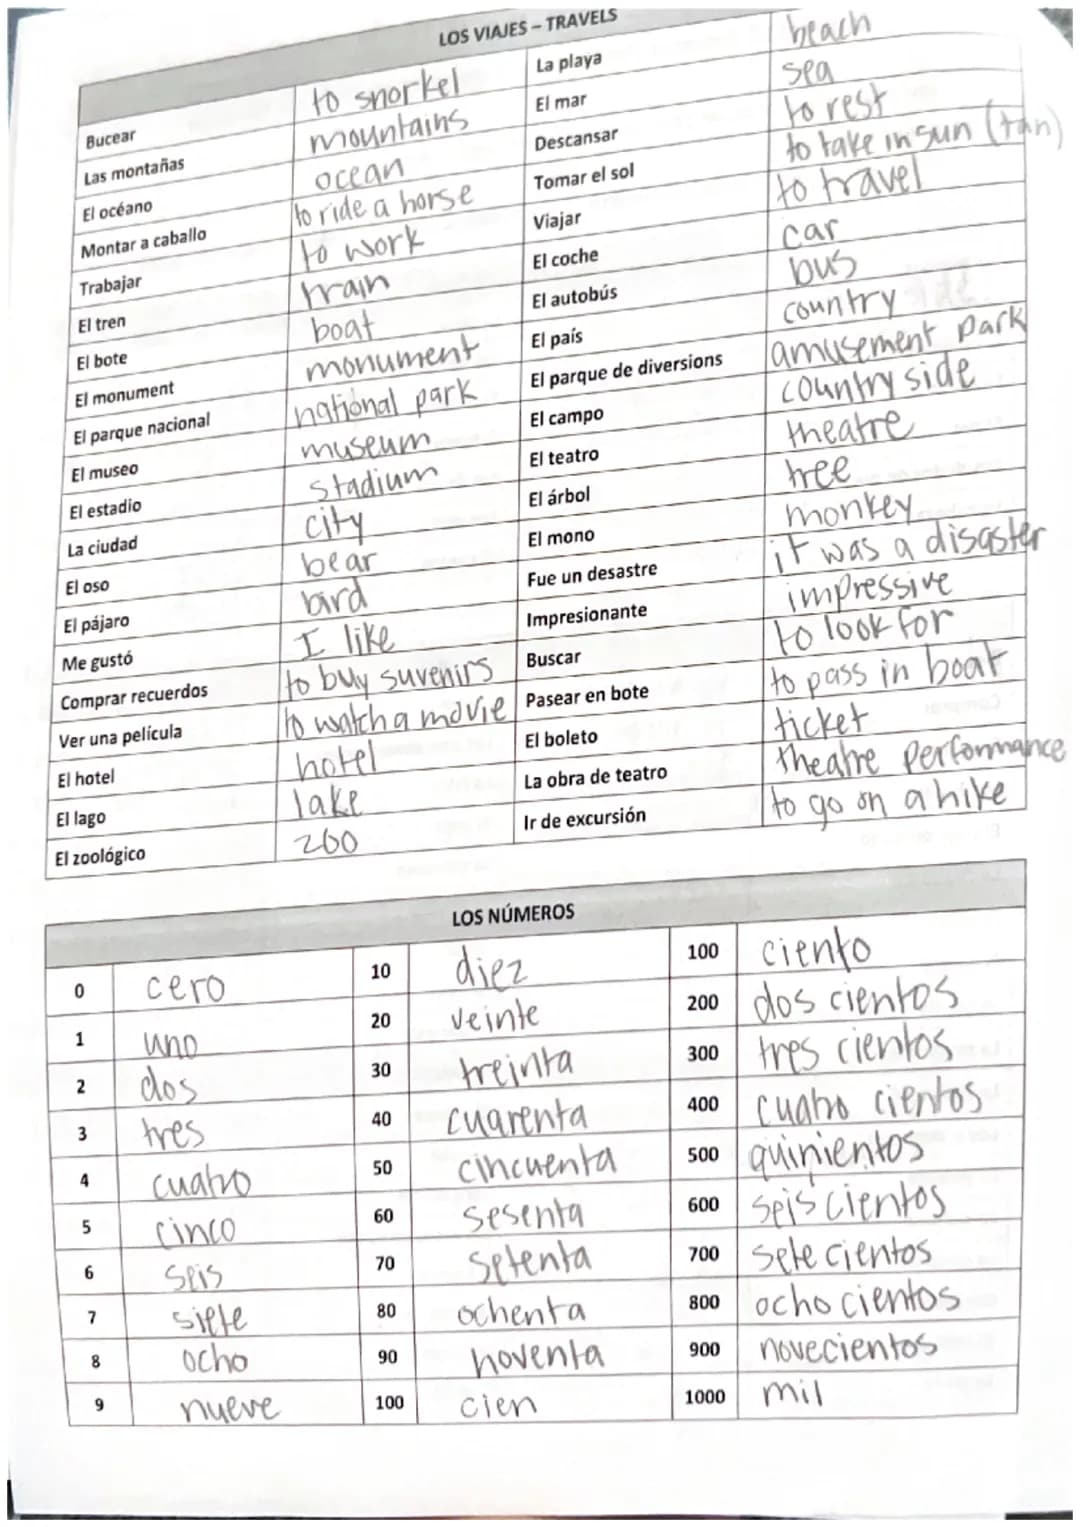 LOS VIAJES – TRAVELS
Bucear to snorkel La playa beach
Las montañas mountains El mar sea
El océano ocean Descansar to rest
Montar a caballo to ride a horse Tomar el sol to take in sun (tan)
Trabajar to work Viajar to travel
El tren train El coche car
El bote boat El autobús bus
El monument monument El país country
El parque nacional national park El parque de diversions amusement park
El museo museum El campo country side
El estadio stadium El teatro theatre
La ciudad city El árbol tree
El oso bear El mono monkey
El pájaro bird Fue un desastre it was a disaster
Me gustó I like Impresionante impressive
Comprar recuerdos to buy suvenirs Buscar to look for
Ver una película to watch a movie Pasear en bote to pass in boat
El hotel hotel El boleto ticket
El lago lake La obra de teatro theatre performance
El zoológico zoo Ir de excursión to go on a hike
LOS NÚMEROS
0 cero 10 diez 100 ciento
1 uno 20 veinte 200 dos cientos
2 dos 30 treinta 300 tres cientos
3 tres 40 cuarenta 400 cuatro cientos
4 cuatro 50 cincuenta 500 quinientos
5 cinco 60 sesenta 600 seis cientos
6 seis 70 setenta 700 sete cientos
7 siete 80 ochenta 800 ocho cientos
8 ocho 90 noventa 900 novecientos
9 nueve 100 cien 1000 mil